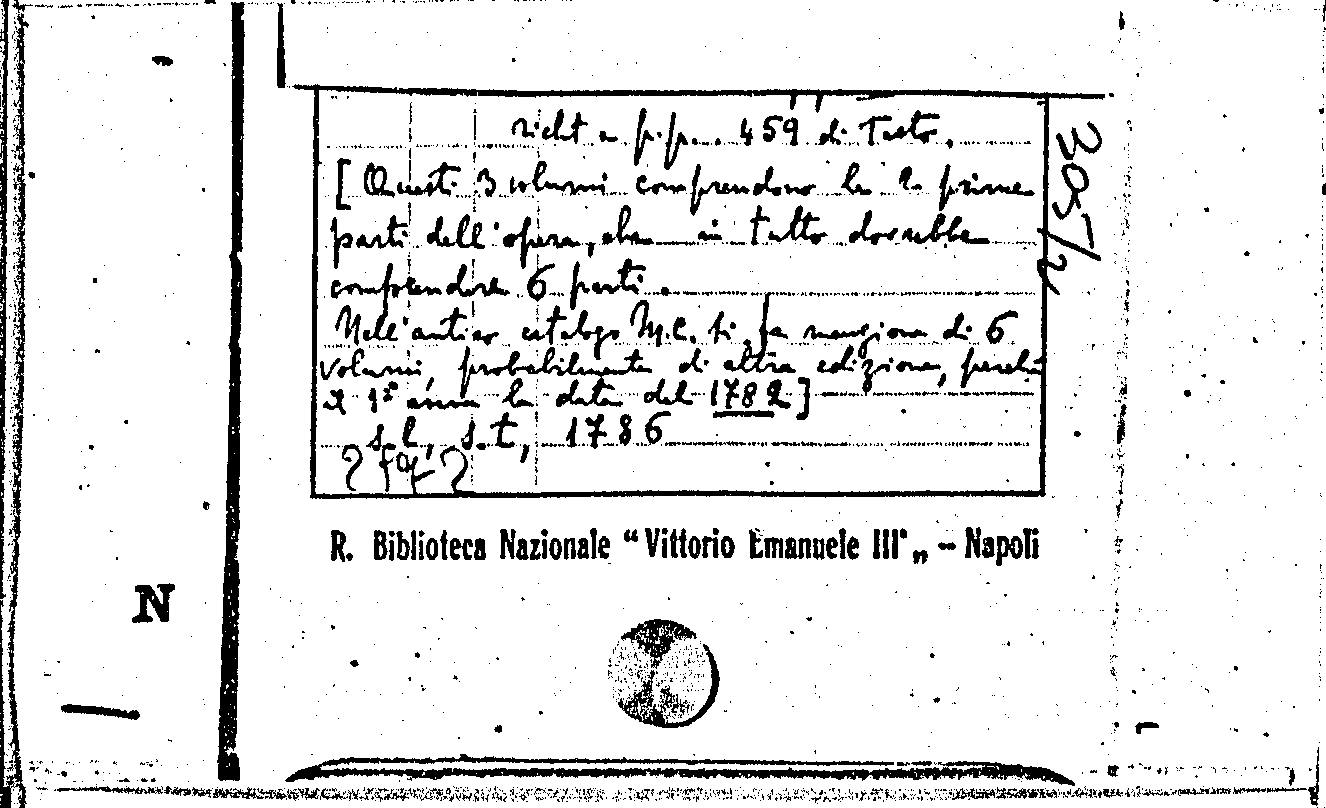 richt a p.p.. 459 di Testo.
[Questi 3 volumi comprendono le 2 prime
parti dell'opera, che in tutto dovrebbe
comprendere 6 parti.
Nell'antico catalogo M.C. si fa menzione di 6
volumi, probabilmente di altra edizione, perchè
il 1º ... la data del 1782]
s.l., s.t., 1786
305/2
R. Biblioteca Nazionale “Vittorio Emanuele III„ - Napoli
N